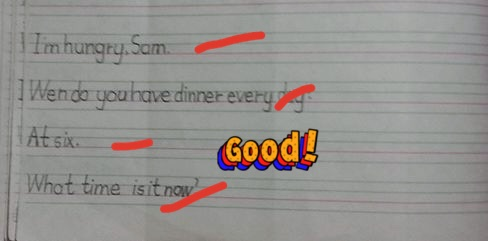 I'm hungry, Sam.
Wen do you have dinner every day?
At six.
Good!
What time is it now?